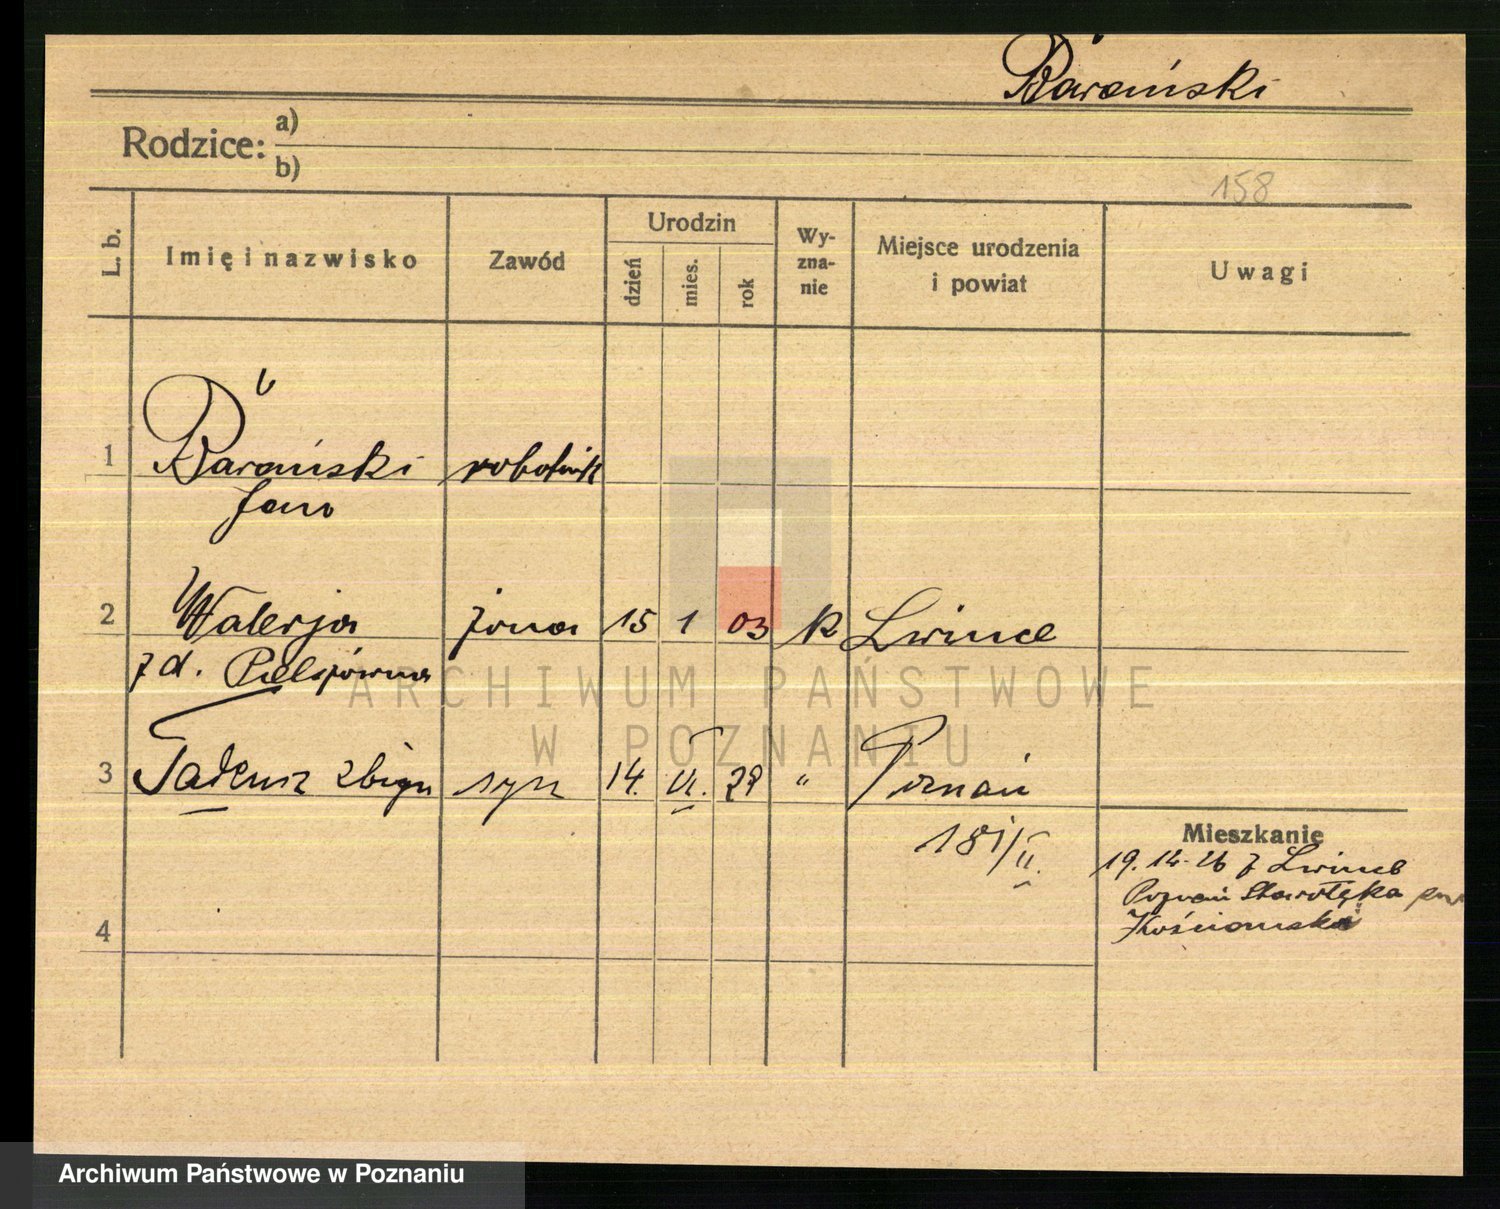 Barański
Rodzice: a)
b)
158
L. b.
Imię i nazwisko
Zawód
Urodzin
dzień
mies.
rok
Wy-
zna-
nie
Miejsce urodzenia
i powiat
Uwagi
1 Barański robotnik
Jan
2 Walerja żona 15 1 03 k
z d.
3 Tadeusz Zbign syn 14. VI. 29 " Poznań
181/II.
Mieszkanie
19. 14-26 z
Poznań Starołęka
4
ARCHIWUM PAŃSTWOWE
W POZNANIU
Archiwum Państwowe w Poznaniu